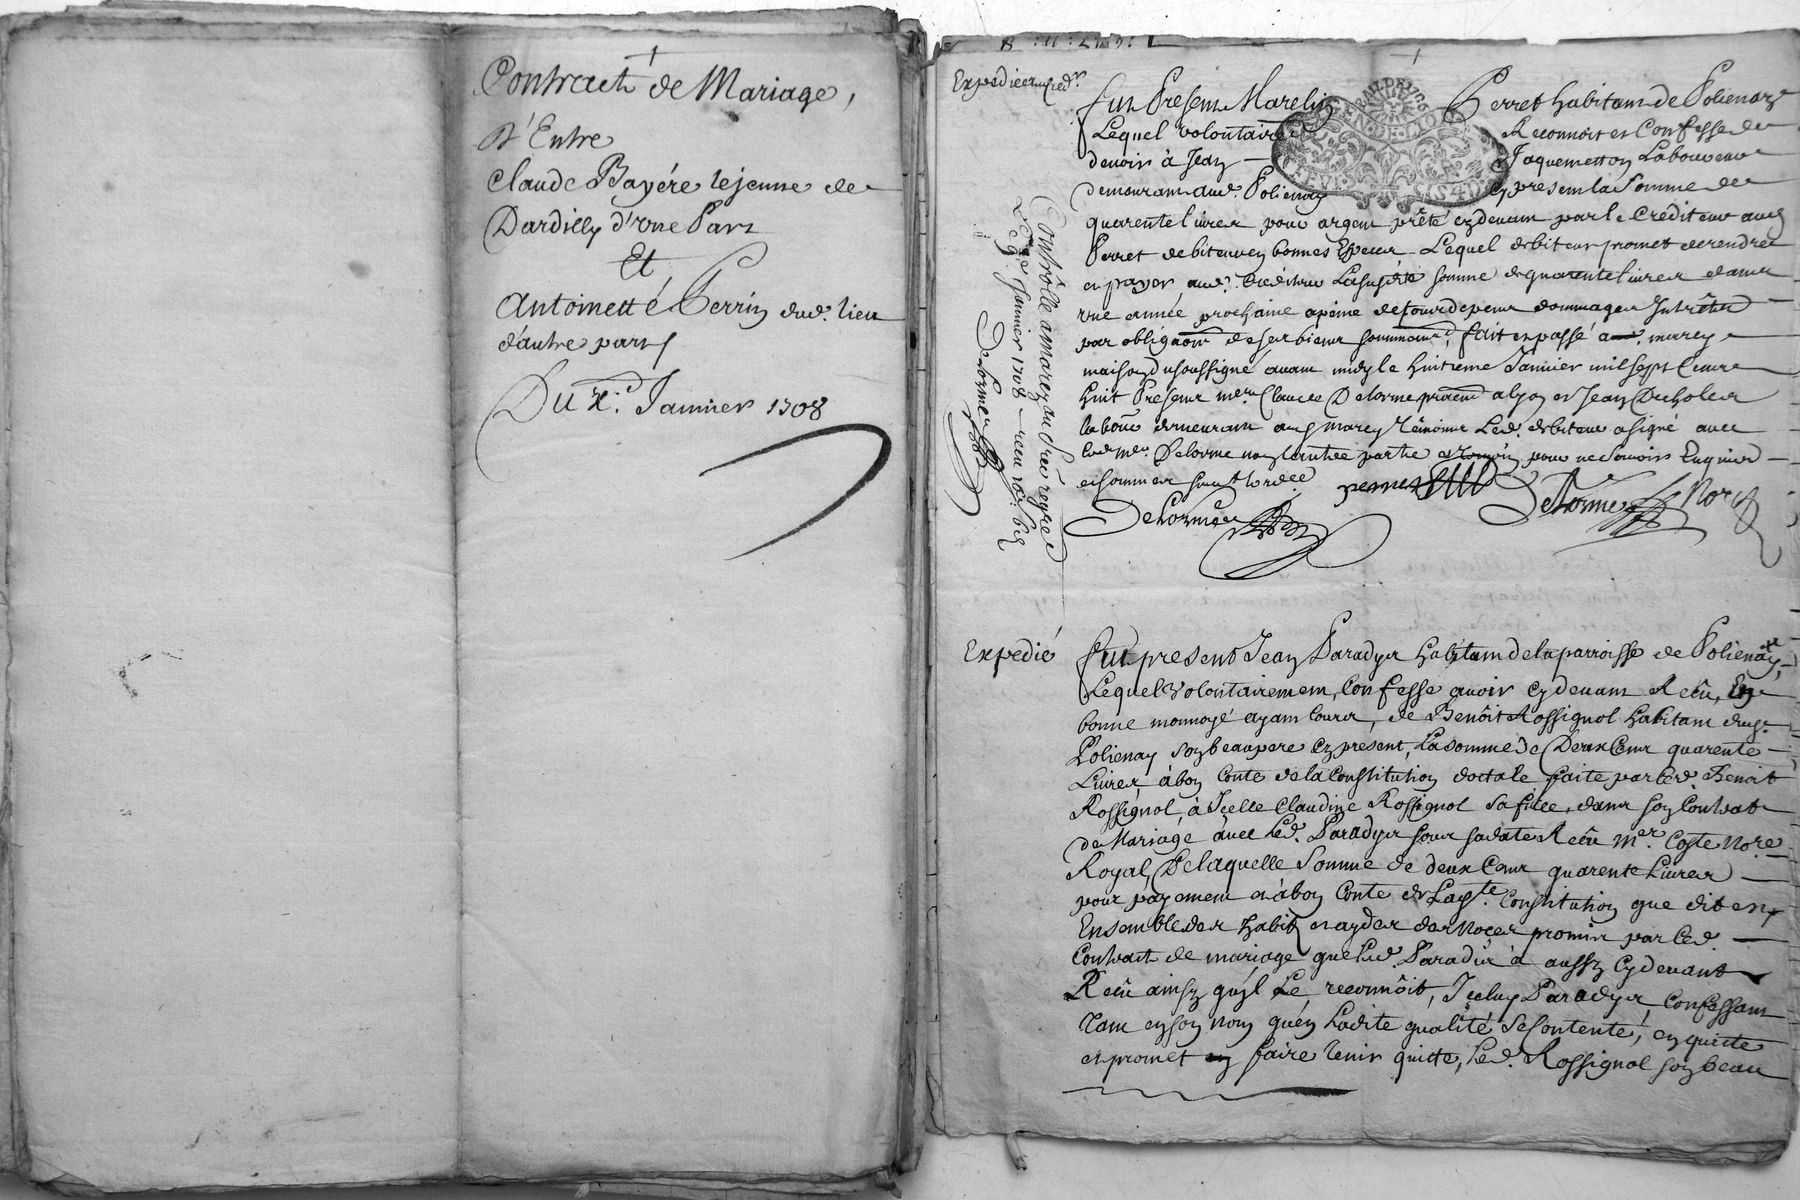 Contract de Mariage,
D'Entre
Claude Bayére lejeune de
Dardilly d'vne Part
Et
Antoinette Perrin dud. lieu
d'autre part
Du xe. Janvier 1708
Expedié au Cred.r
fut Present Marelin Perret habitant de Polienay
Lequel volontaire Reconnoit et Confesse de
devoir à Jean Jaquemetton Laboureur
demeurant aud. Polienay cy present la Somme de
quarente livres pour argent prêté cy devant par le Crediteur aud.
Perret debiteur en bonnes Especes Lequel debiteur promet de rendre
et payer aud. Crediteur Lasusd.te somme de quarente livres dans
vne année prochaine a peine de tous depens dommages Intrêts
par obligaôn de ses biens soumissions, fait et passé a marcy
maison du soussigné avant midy le huitieme Janvier mil sept Cents
huit Presents Claude Delorme a lyon et Jean
demeurant aud marcy témoins Led. debiteur a signé avec
led. Delorme non lautre partie et temoin pour ne Scavoir Enquis
et sommes
perret
Delorme Delorme No.re
Controllé a marcy au 
Le 9e Janvier 1708 receu
Delorme
Expedié
fut present Jean Paradys habitant de la parroisse de Polienay,
Lequel volontairement, Confesse avoir cy devant Reeû, En
bonne monnoye ayant Cours, de Benôit Rossignol habitant dud.
Polienay son beaupere cy present, La somme de Deux Cent quarente
Livres, à bon Conte de la Constitution doctale faite par led. Benoit
Rossignol, à Icelle Claudine Rossignol sa fille, dans son Contrat
de Mariage avec Led. Paradys sous sa date Receu M.er Coste No.re
Royal, De laquelle Somme de deux Cent quarente Livres
pour payement et à bon Conte de Lad.te Constitution que dit est
Ensemble des habits et ayder des Noces promis par led.
Contract de mariage que led. Paradis à aussy Cydevant
Reeû ainsy qu'yl Le reconnôit, Iceluy Paradys Confessant
Tant en son nom qu'en Ladite qualité se Contente, en quitte
et promet en faire tenir quitte, Led. Rossignol son beau